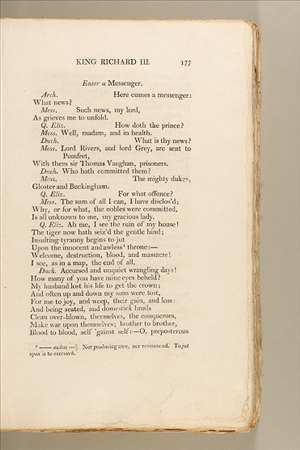 KING RICHARD III. 177
Enter a Messenger.
Arch. Here comes a messenger:
What news?
Mess. Such news, my lord,
As grieves me to unfold.
Q. Eliz. How doth the prince?
Mess. Well, madam, and in health.
Duch. What is thy news?
Mess. Lord Rivers, and lord Grey, are sent to
Pomfret,
With them sir Thomas Vaughan, prisoners.
Duch. Who hath committed them?
Mess. The mighty dukes,
Gloster and Buckingham.
Q. Eliz. For what offence?
Mess. The sum of all I can, I have disclos'd;
Why, or for what, the nobles were committed,
Is all unknown to me, my gracious lady.
Q. Eliz. Ah me, I see the ruin of my house!
The tiger now hath seiz'd the gentle hind;
Insulting tyranny begins to jut
Upon the innocent and awless⁴ throne:—
Welcome, destruction, blood, and massacre!
I see, as in a map, the end of all.
Duch. Accursed and unquiet wrangling days!
How many of you have mine eyes beheld?
My husband lost his life to get the crown;
And often up and down my sons were tost,
For me to joy, and weep, their gain, and loss:
And being seated, and domestick broils
Clean over-blown, themselves, the conquerors,
Make war upon themselves; brother to brother,
Blood to blood, self 'gainst self:—O, preposterous
⁴ —— awless —] Not producing awe, not reverenced. To jut
upon is to encroach.